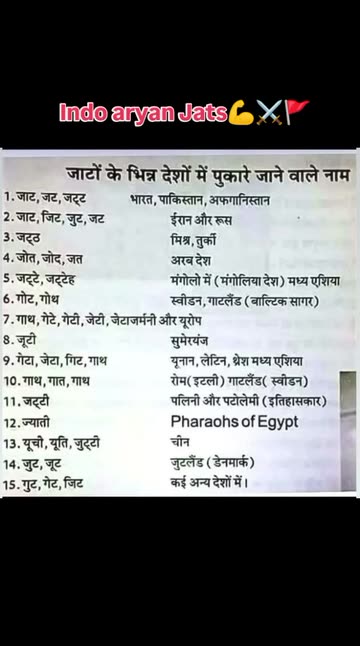 Indo aryan Jats💪⚔️🚩
जाटों के भिन्न देशों में पुकारे जाने वाले नाम
1. जाट, जट, जट्ट भारत, पाकिस्तान, अफगानिस्तान
2. जाट, जिट, जुट, जट ईरान और रूस
3. जट्ठ मिश्र, तुर्की
4. जोत, जोद, जत अरब देश
5. जट्टे, जट्टेह मंगोलो में (मंगोलिया देश) मध्य एशिया
6. गोट, गोथ स्वीडन, गाटलैंड (बाल्टिक सागर)
7. गाथ, गेटे, गेटी, जेटी, जेटाजर्मनी और यूरोप
8. जूटी सुमेरयंज
9. गेटा, जेटा, गिट, गाथ यूनान, लेटिन, थ्रेश मध्य एशिया
10. गाथ, गात, गाथ रोम (इटली) गाटलैंड (स्वीडन)
11. जट्टी पलिनी और पटोलेमी (इतिहासकार)
12. ज्याती Pharaohs of Egypt
13. यूची, यूति, जुट्टी चीन
14. जुट, जूट जुटलैंड (डेनमार्क)
15. गुट, गेट, जिट कई अन्य देशों में।